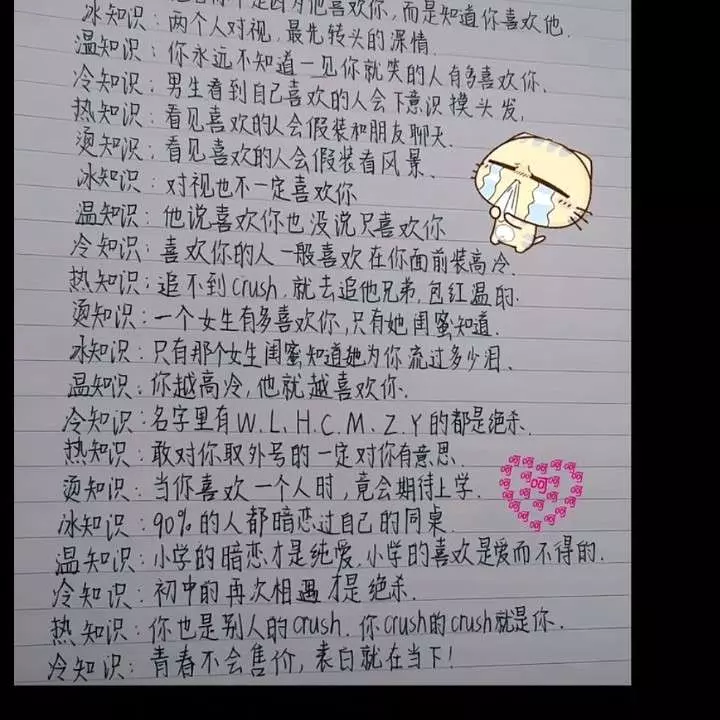 是因为他喜欢你,而是知道你喜欢他.
冰知识:两个人对视,最先转头的深情.
温知识:你永远不知道一见你就笑的人有多喜欢你.
冷知识:男生看到自己喜欢的人会下意识摸头发,
热知识:看见喜欢的人会假装和朋友聊天.
烫知识:看见喜欢的人会假装看风景.
冰知识:对视也不一定喜欢你
温知识:他说喜欢你也没说只喜欢你
冷知识:喜欢你的人一般喜欢在你面前装高冷.
热知识:追不到crush,就去追他兄弟,包红温的.
烫知识:一个女生有多喜欢你,只有她闺蜜知道.
冰知识:只有那个女生闺蜜知道她为你流过多少泪.
温知识:你越高冷,他就越喜欢你.
冷知识:名字里有W.L.H.C.M.Z.Y的都是绝杀.
热知识:敢对你取外号的一定对你有意思.
烫知识:当你喜欢一个人时,竟会期待上学.
冰知识:90%的人都暗恋过自己的同桌.
温知识:小学的暗恋才是纯爱.小学的喜欢是爱而不得的.
冷知识:初中的再次相遇才是绝杀.
热知识:你也是别人的crush.你crush的crush就是你.
冷知识:青春不会售价,表白就在当下!